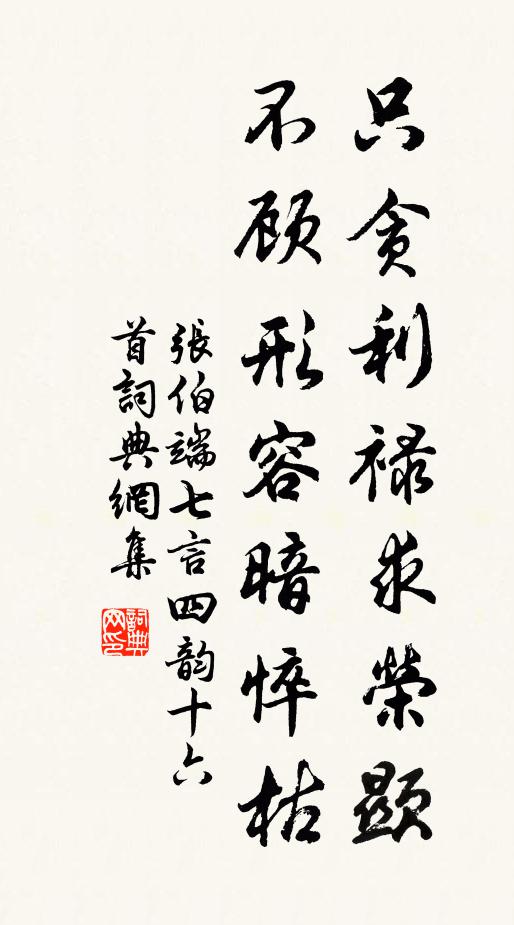 只贪利禄求榮顯
不顾形容暗悴枯
張伯端七言四韵十六
首詞典網集
詞典网印